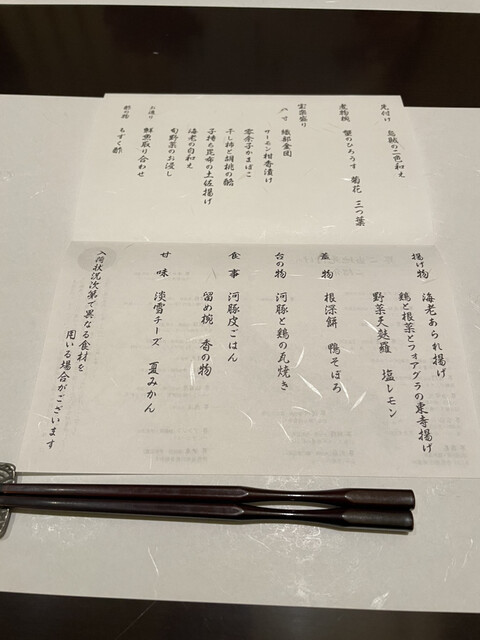 先付け 烏賊の二色和え
煮物椀 蟹のひろうす 菊花 三つ葉
宝楽盛り
八寸 織部釜園
サーモン柑香漬け
零余子かまぼこ
干し柿と胡桃の醍
子持ち昆布の土佐揚げ
海老の白和え
旬野菜のお浸し
お造り 鮮魚取り合わせ
酢の物 もずく酢
揚げ物 海老あられ揚げ
鶏と根菜とフォアグラの東寺揚げ
野菜天麩羅 塩レモン
蓋物 根深餅 鴨そぼろ
台の物 河豚と鶏の瓦焼き
食事 河豚皮ごはん
留め椀 香の物
甘味 淡雪チーズ 夏みかん
入荷状況次第で異なる食材を
用いる場合がございます